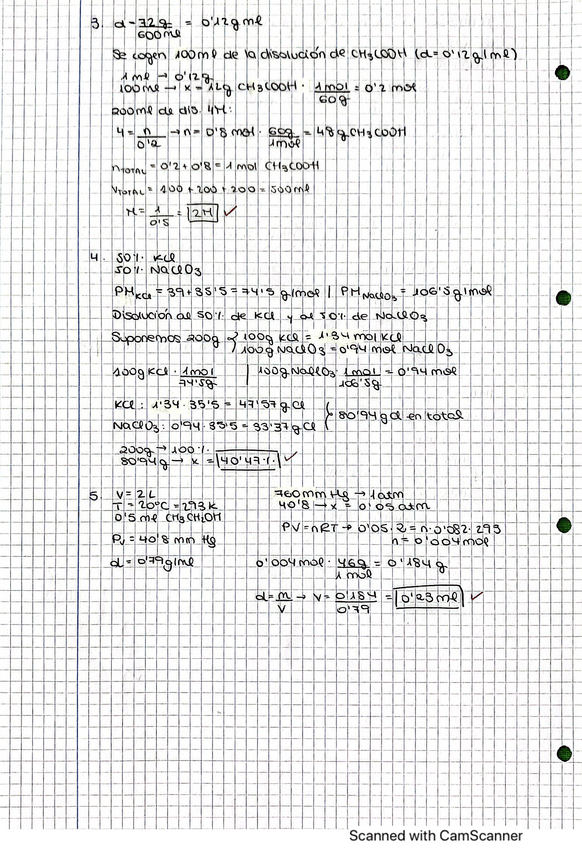 3. d = 72g/600ml = 0'12 g ml
Se cogen 100ml de la disolución de CH3COOH (d=0'12g/ml)
1 ml → 0'12g
100ml → x = 12g CH3COOH · 1mol/60g = 0'2 mol
200ml de dis. 4M:
4 = n/0'2 → n = 0'8 mol · 60g/1mol = 48g CH3COOH
nTOTAL = 0'2 + 0'8 = 1 mol CH3COOH
VTOTAL = 100 + 200 + 200 = 500ml
M = 1/0'5 = 2M ✓
4. 50% KCl
50% NaClO3
PM KCl = 39 + 35'5 = 74'5 g/mol | PM NaClO3 = 106'5 g/mol
Disolución al 50% de KCl y al 50% de NaClO3
Suponemos 200g { 100g KCl = 1'34 mol KCl
100g NaClO3 = 0'94 mol NaClO3
100g KCl · 1mol/74'5g | 100g NaClO3 · 1mol/106'5g = 0'94 mol
KCl: 1'34 · 35'5 = 47'57 g Cl
NaClO3: 0'94 · 35'5 = 33'37g Cl } 80'94 g Cl en total
200g → 100%
80'94g → x = 40'47% ✓
5. V = 2L
T = 20°C = 293K
0'5 ml CH3CH2OH
Pv = 40'8 mm Hg
d = 0'79g/ml
760mm Hg → 1atm
40'8 → x = 0'05 atm
PV = nRT → 0'05 · 2 = n · 0'082 · 293
n = 0'004 mol
0'004 mol · 46g/1 mol = 0'184 g
d = m/V → V = 0'184/0'79 = 0'23 ml ✓
Scanned with CamScanner